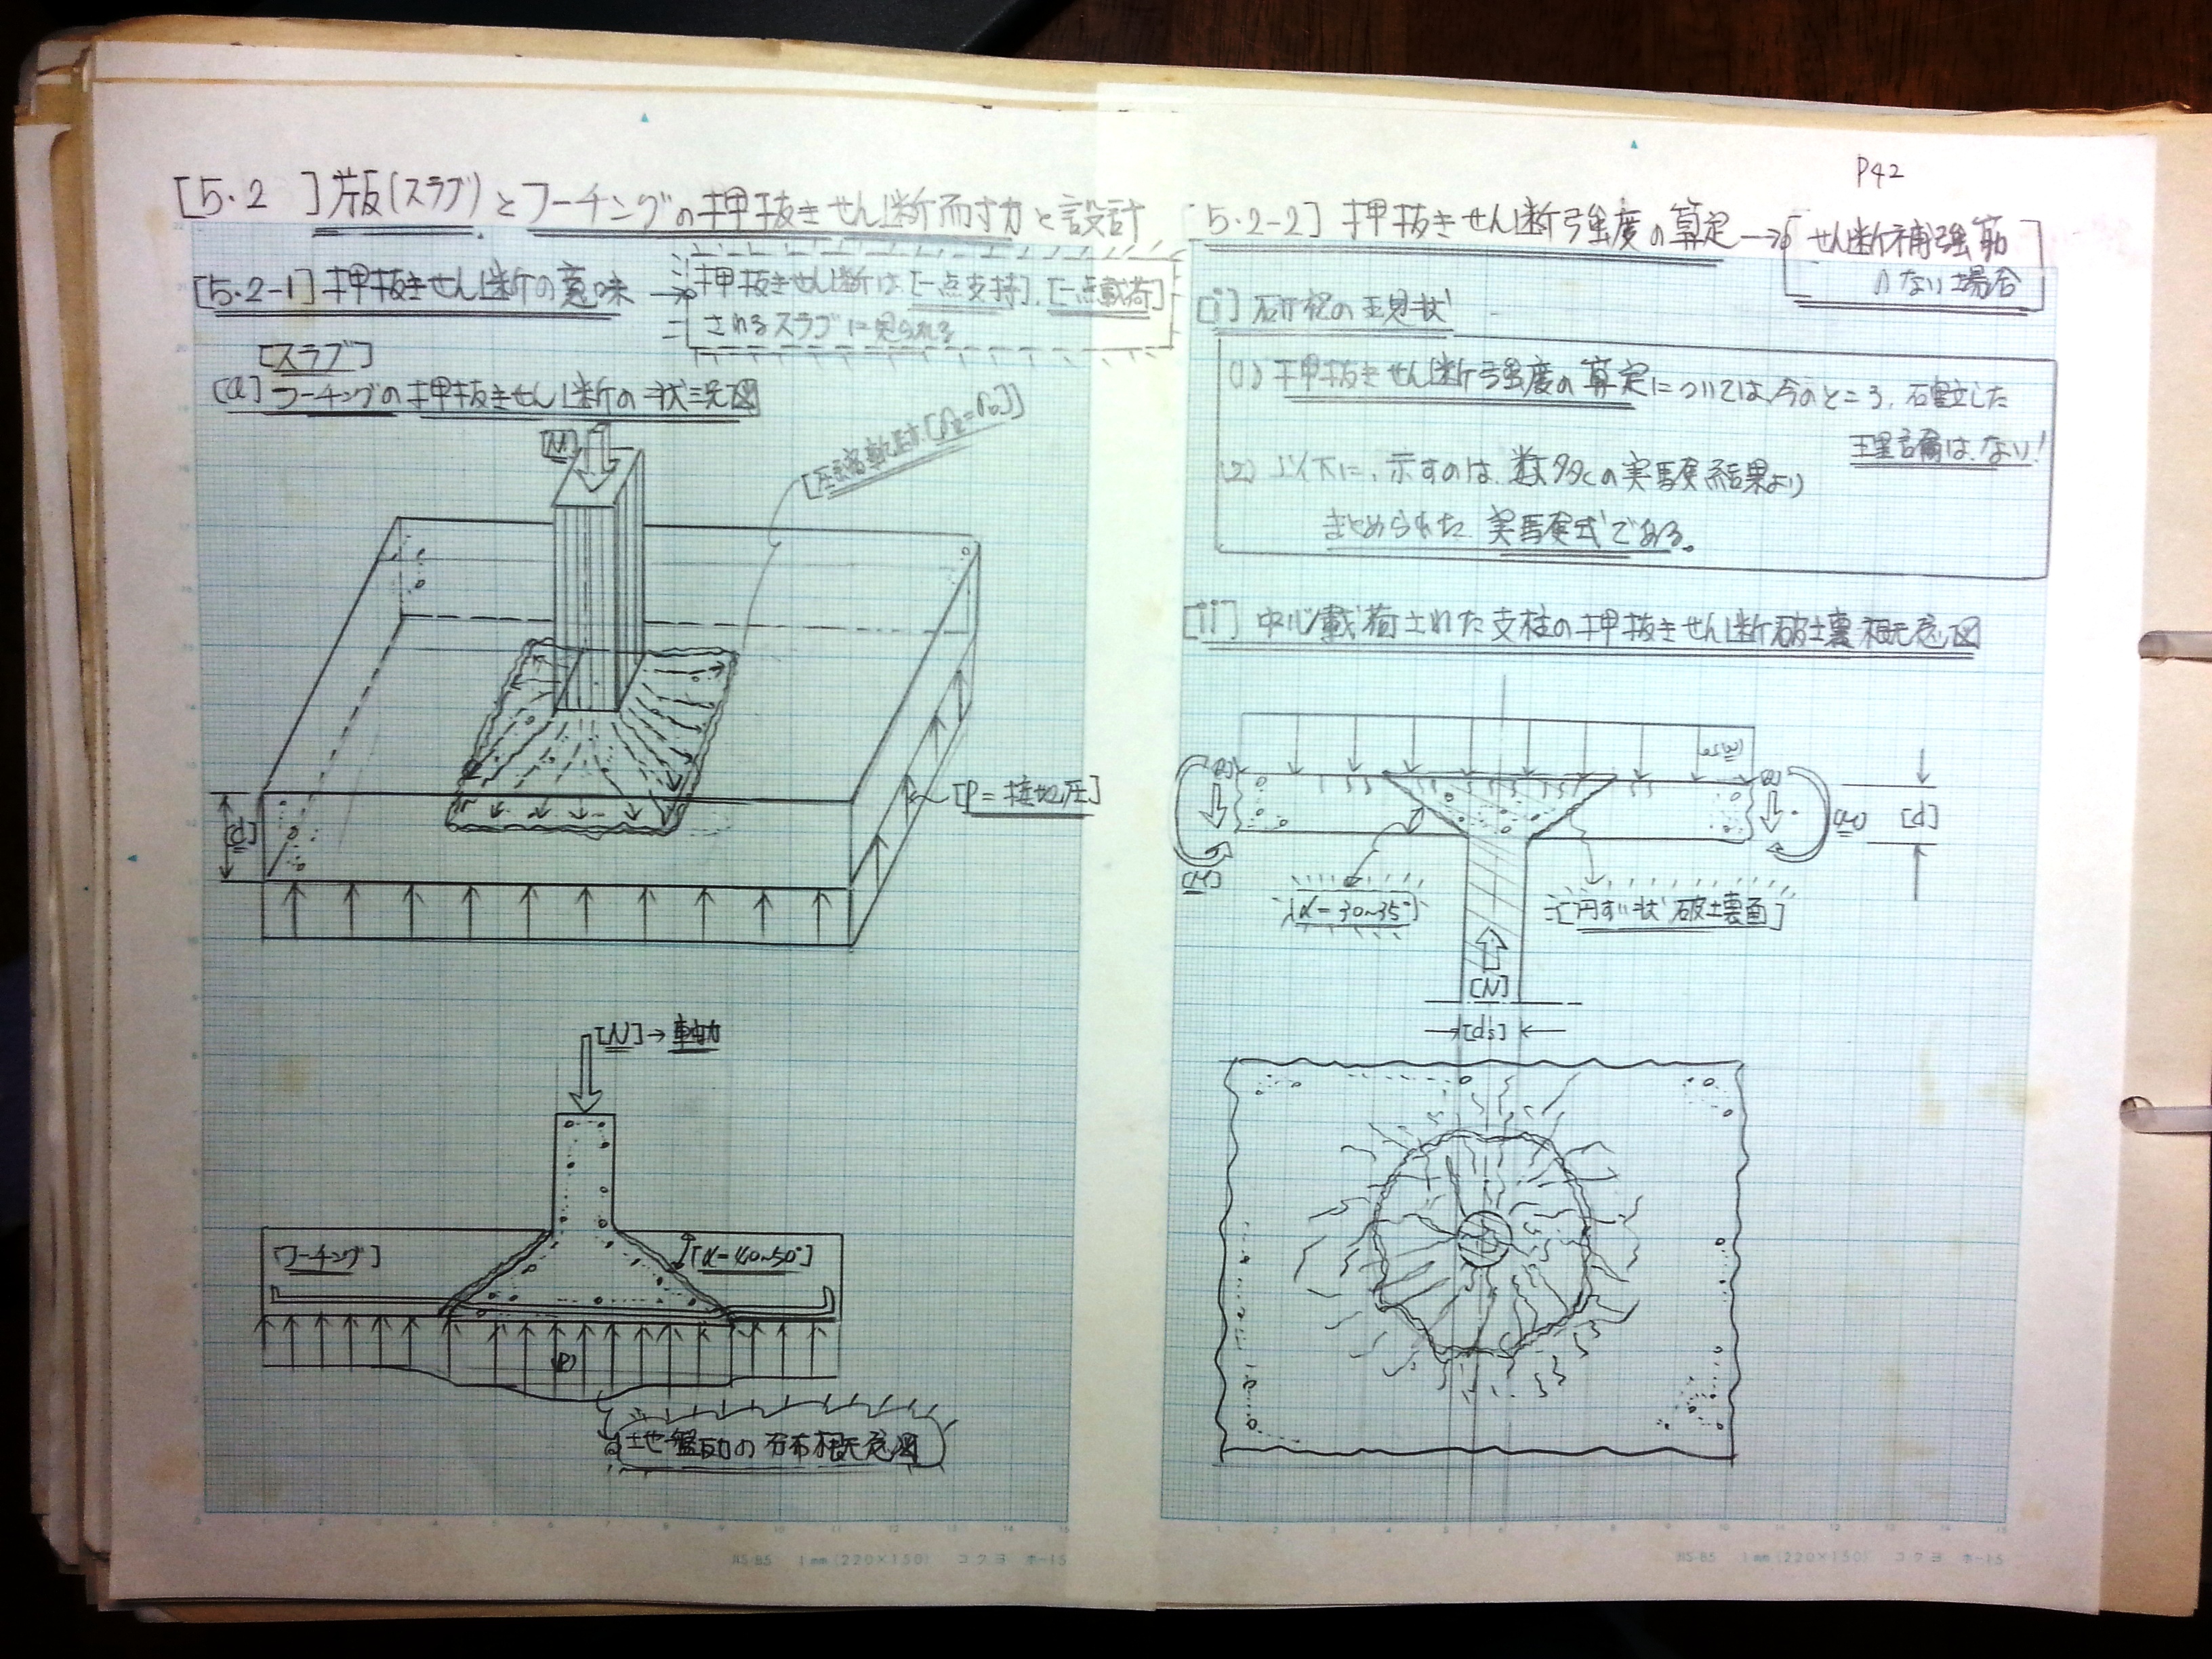 [5.2 ] 版(スラブ)とフーチングの押抜きせん断耐力と設計
[5.2-1] 押抜きせん断の意味 → 押抜きせん断は、[一点支持]、[一点載荷]
されるスラブに見られる
[スラブ]
[a] フーチングの押抜きせん断の状況図
[N]
[d]
[P=接地圧]
[N]→軸力
[フーチング]
[α=40~50°]
地盤反力の分布概念図
P42
[5.2-2] 押抜きせん断強度の算定→[せん断補強筋
のない場合]
[i] 研究の現状
(1) 押抜きせん断強度の算定については、今のところ、確立した
理論はない!
(2) 以下に、示すのは、数多くの実験結果より
まとめられた実験式である。
[ii] 中心載荷された支柱の押抜きせん断破壊概念図
[d]
[M]
[α=30~35°]
[円すい状破壊面]
[N]
[ds]
JIS B5 1mm(220×150) コクヨ ホ-15
JIS B5 1mm(220×150) コクヨ ホ-15